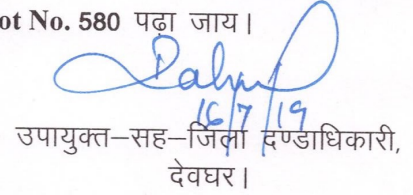 ot No. 580 पढ़ा जाय।
16/7/19
उपायुक्त–सह–जिला दण्डाधिकारी,
देवघर।